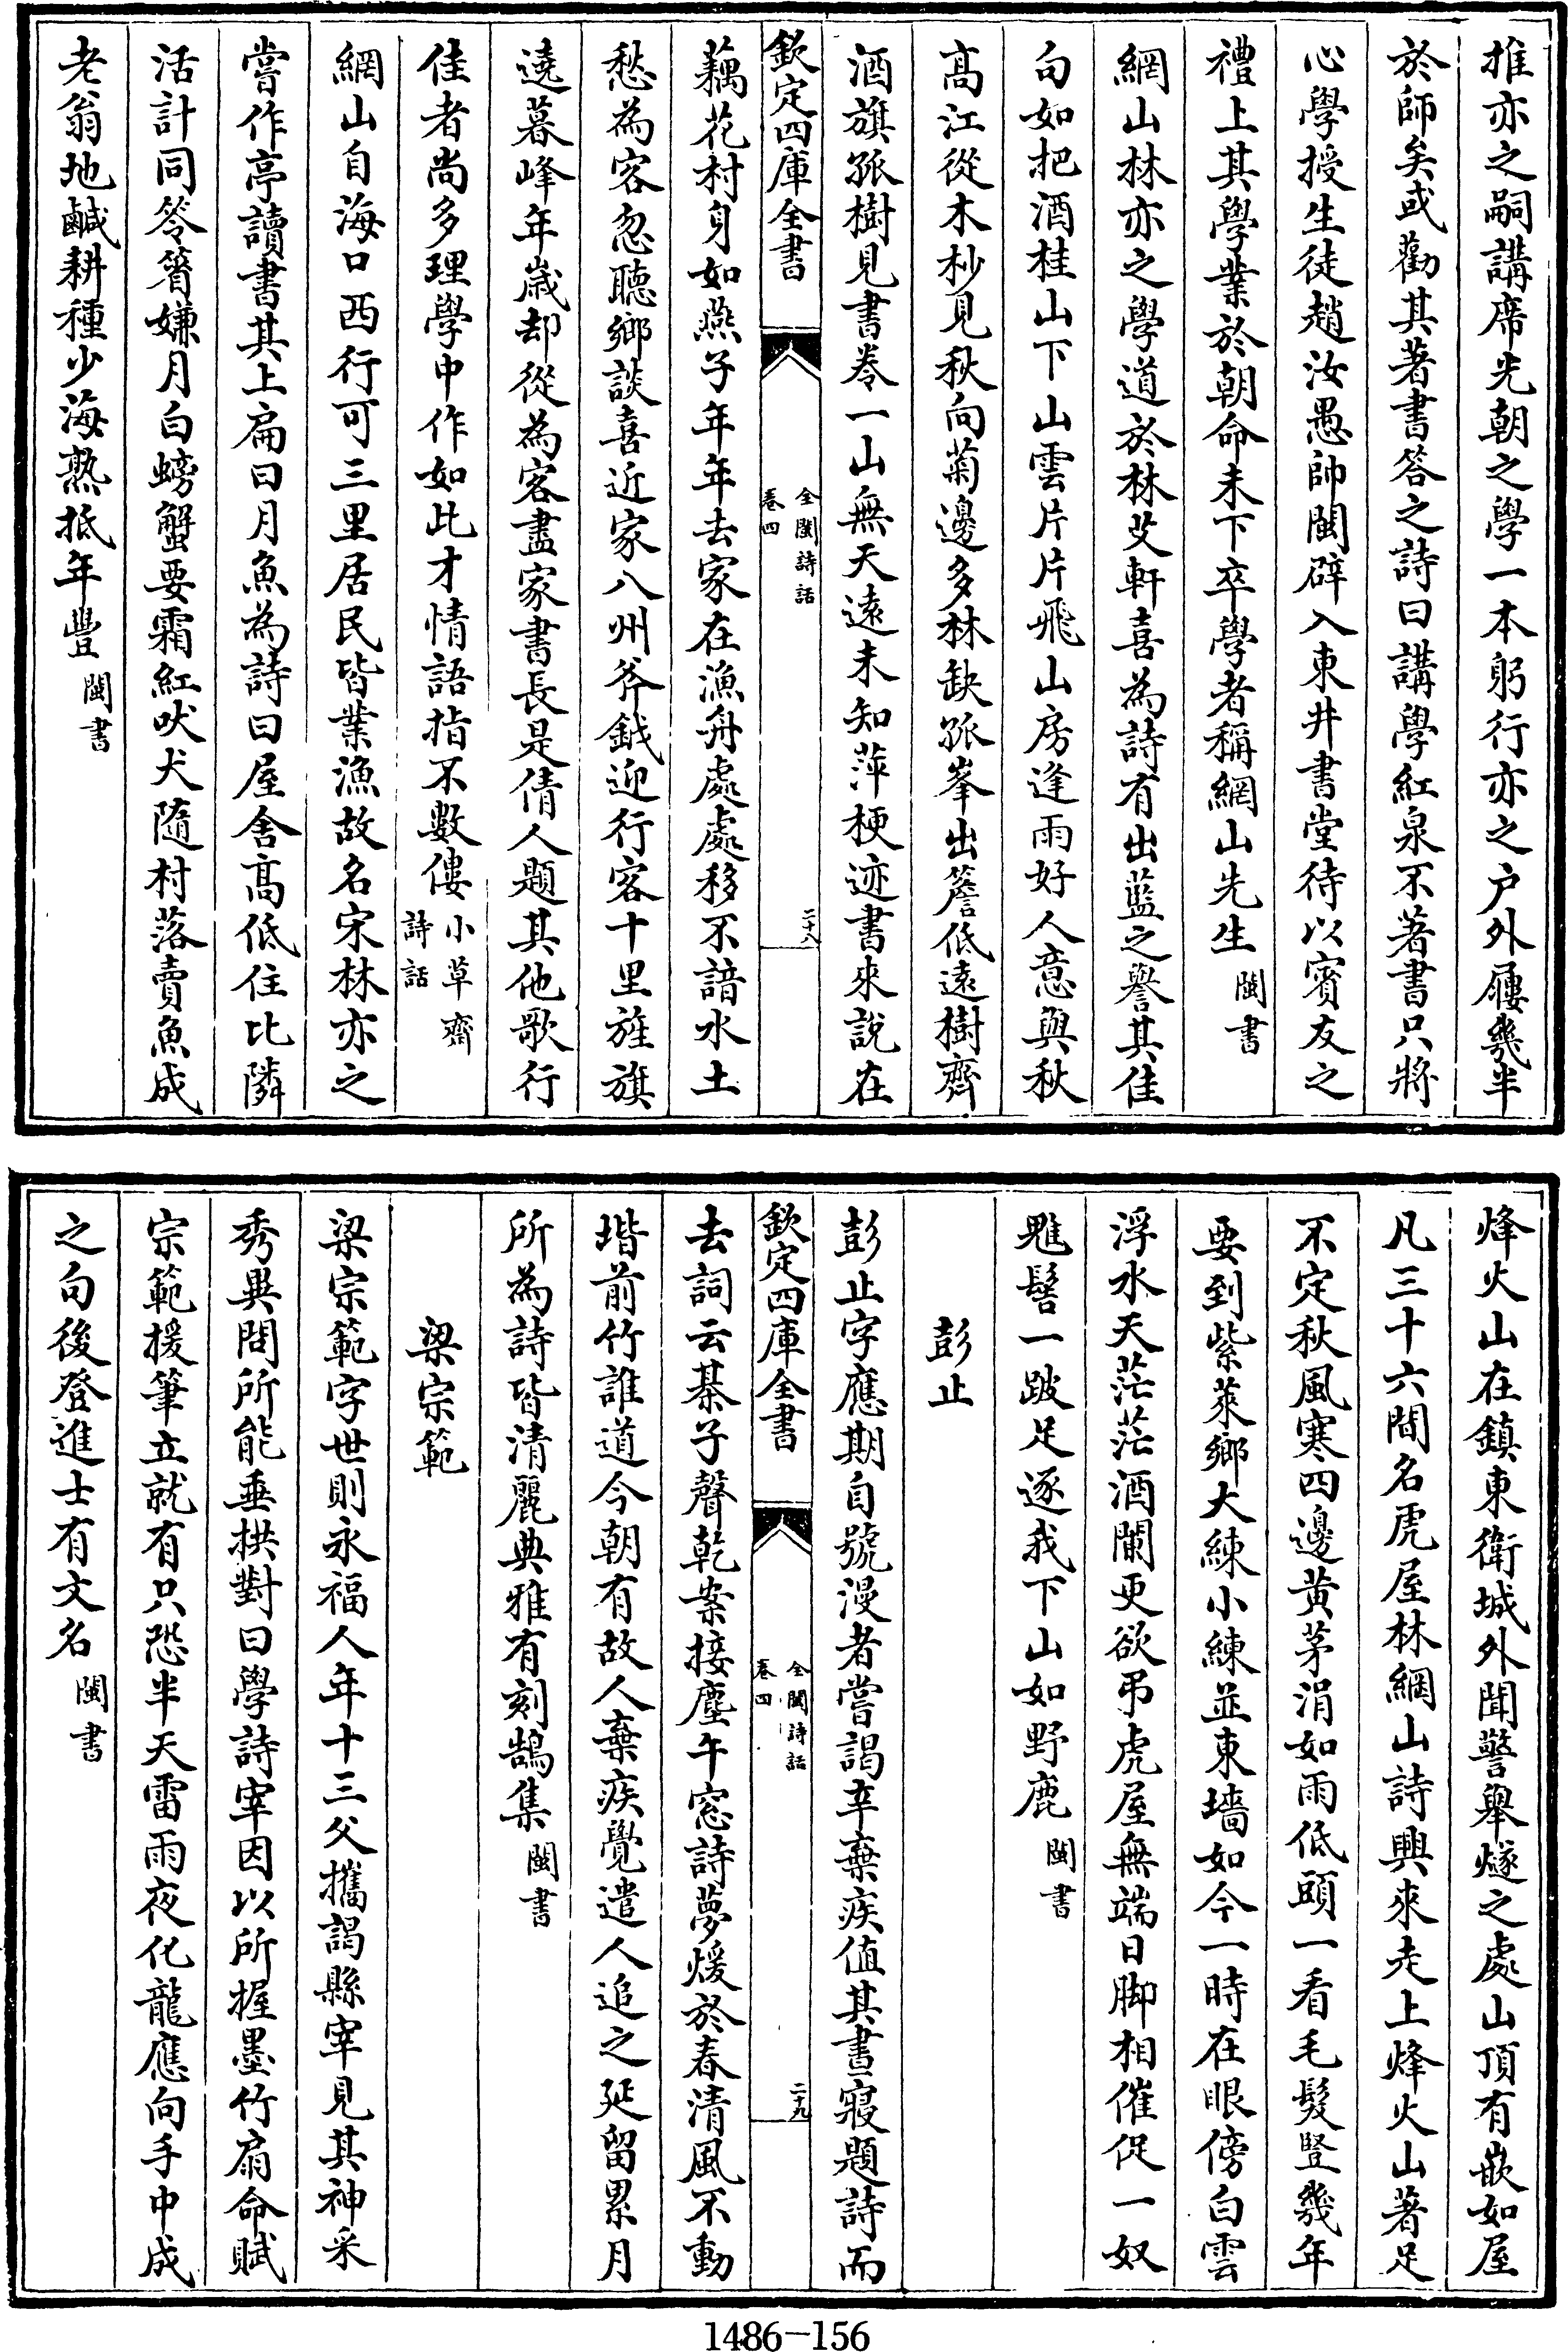 推亦之嗣講席先朝之學一本躬行亦之户外屨幾半
於師矣或勸其著書答之詩曰講學紅泉不著書只將
心學授生徒趙汝愚帥閩辟入東井書堂待以賓友之
禮上其學業於朝命未下卒學者稱網山先生閩書
網山林亦之學道於林艾軒喜為詩有出藍之譽其佳
句如把酒桂山下山雲片片飛山房逢雨好人意與秋
髙江從木杪見秋向菊邊多林缺孤峯出簷低遠樹齊
酒旗孤樹見書卷一山無天遠未知萍梗迹書來說在
欽定四庫全書 全閩詩話 卷四 二十八
藕花村身如燕子年年去家在漁舟處處移不諳水土
愁為客忽聽鄉談喜近家八州斧鉞迎行客十里旌旗
遶暮峰年歲却從為客盡家書長是倩人題其他歌行
佳者尚多理學中作如此才情語指不數僂小草齋詩話
網山自海口西行可三里居民皆業漁故名宋林亦之
嘗作亭讀書其上扁曰月魚為詩曰屋舍髙低住比隣
活計同笭箵嫌月白螃蟹要霜紅吠犬隨村落賣魚成
老翁地鹹耕種少海熟抵年豐閩書
烽火山在鎮東衛城外聞警舉燧之處山頂有嵌如屋
凡三十六間名虎屋林網山詩興來走上烽火山著足
不定秋風寒四邊黃茅涓如雨低頭一看毛髮豎幾年
要到紫萊鄉大練小練並東墻如今一時在眼傍白雲
浮水天茫茫酒闌更欲弔虎屋無端日脚相催促一奴
魋髻一跛足逐我下山如野鹿閩書
彭止
彭止字應期自號漫者嘗謁辛棄疾值其晝寢題詩而
欽定四庫全書 全閩詩話 卷四 二十九
去詞云棊子聲乾案接塵午窓詩夢煖於春清風不動
堦前竹誰道今朝有故人棄疾覺遣人追之延留累月
所為詩皆清麗典雅有刻鵠集閩書
梁宗範
梁宗範字世則永福人年十三父攜謁縣宰見其神采
秀異問所能垂拱對曰學詩宰因以所握墨竹扇命賦
宗範援筆立就有只恐半天雷雨夜化龍應向手中成
之句後登進士有文名閩書
1486—156